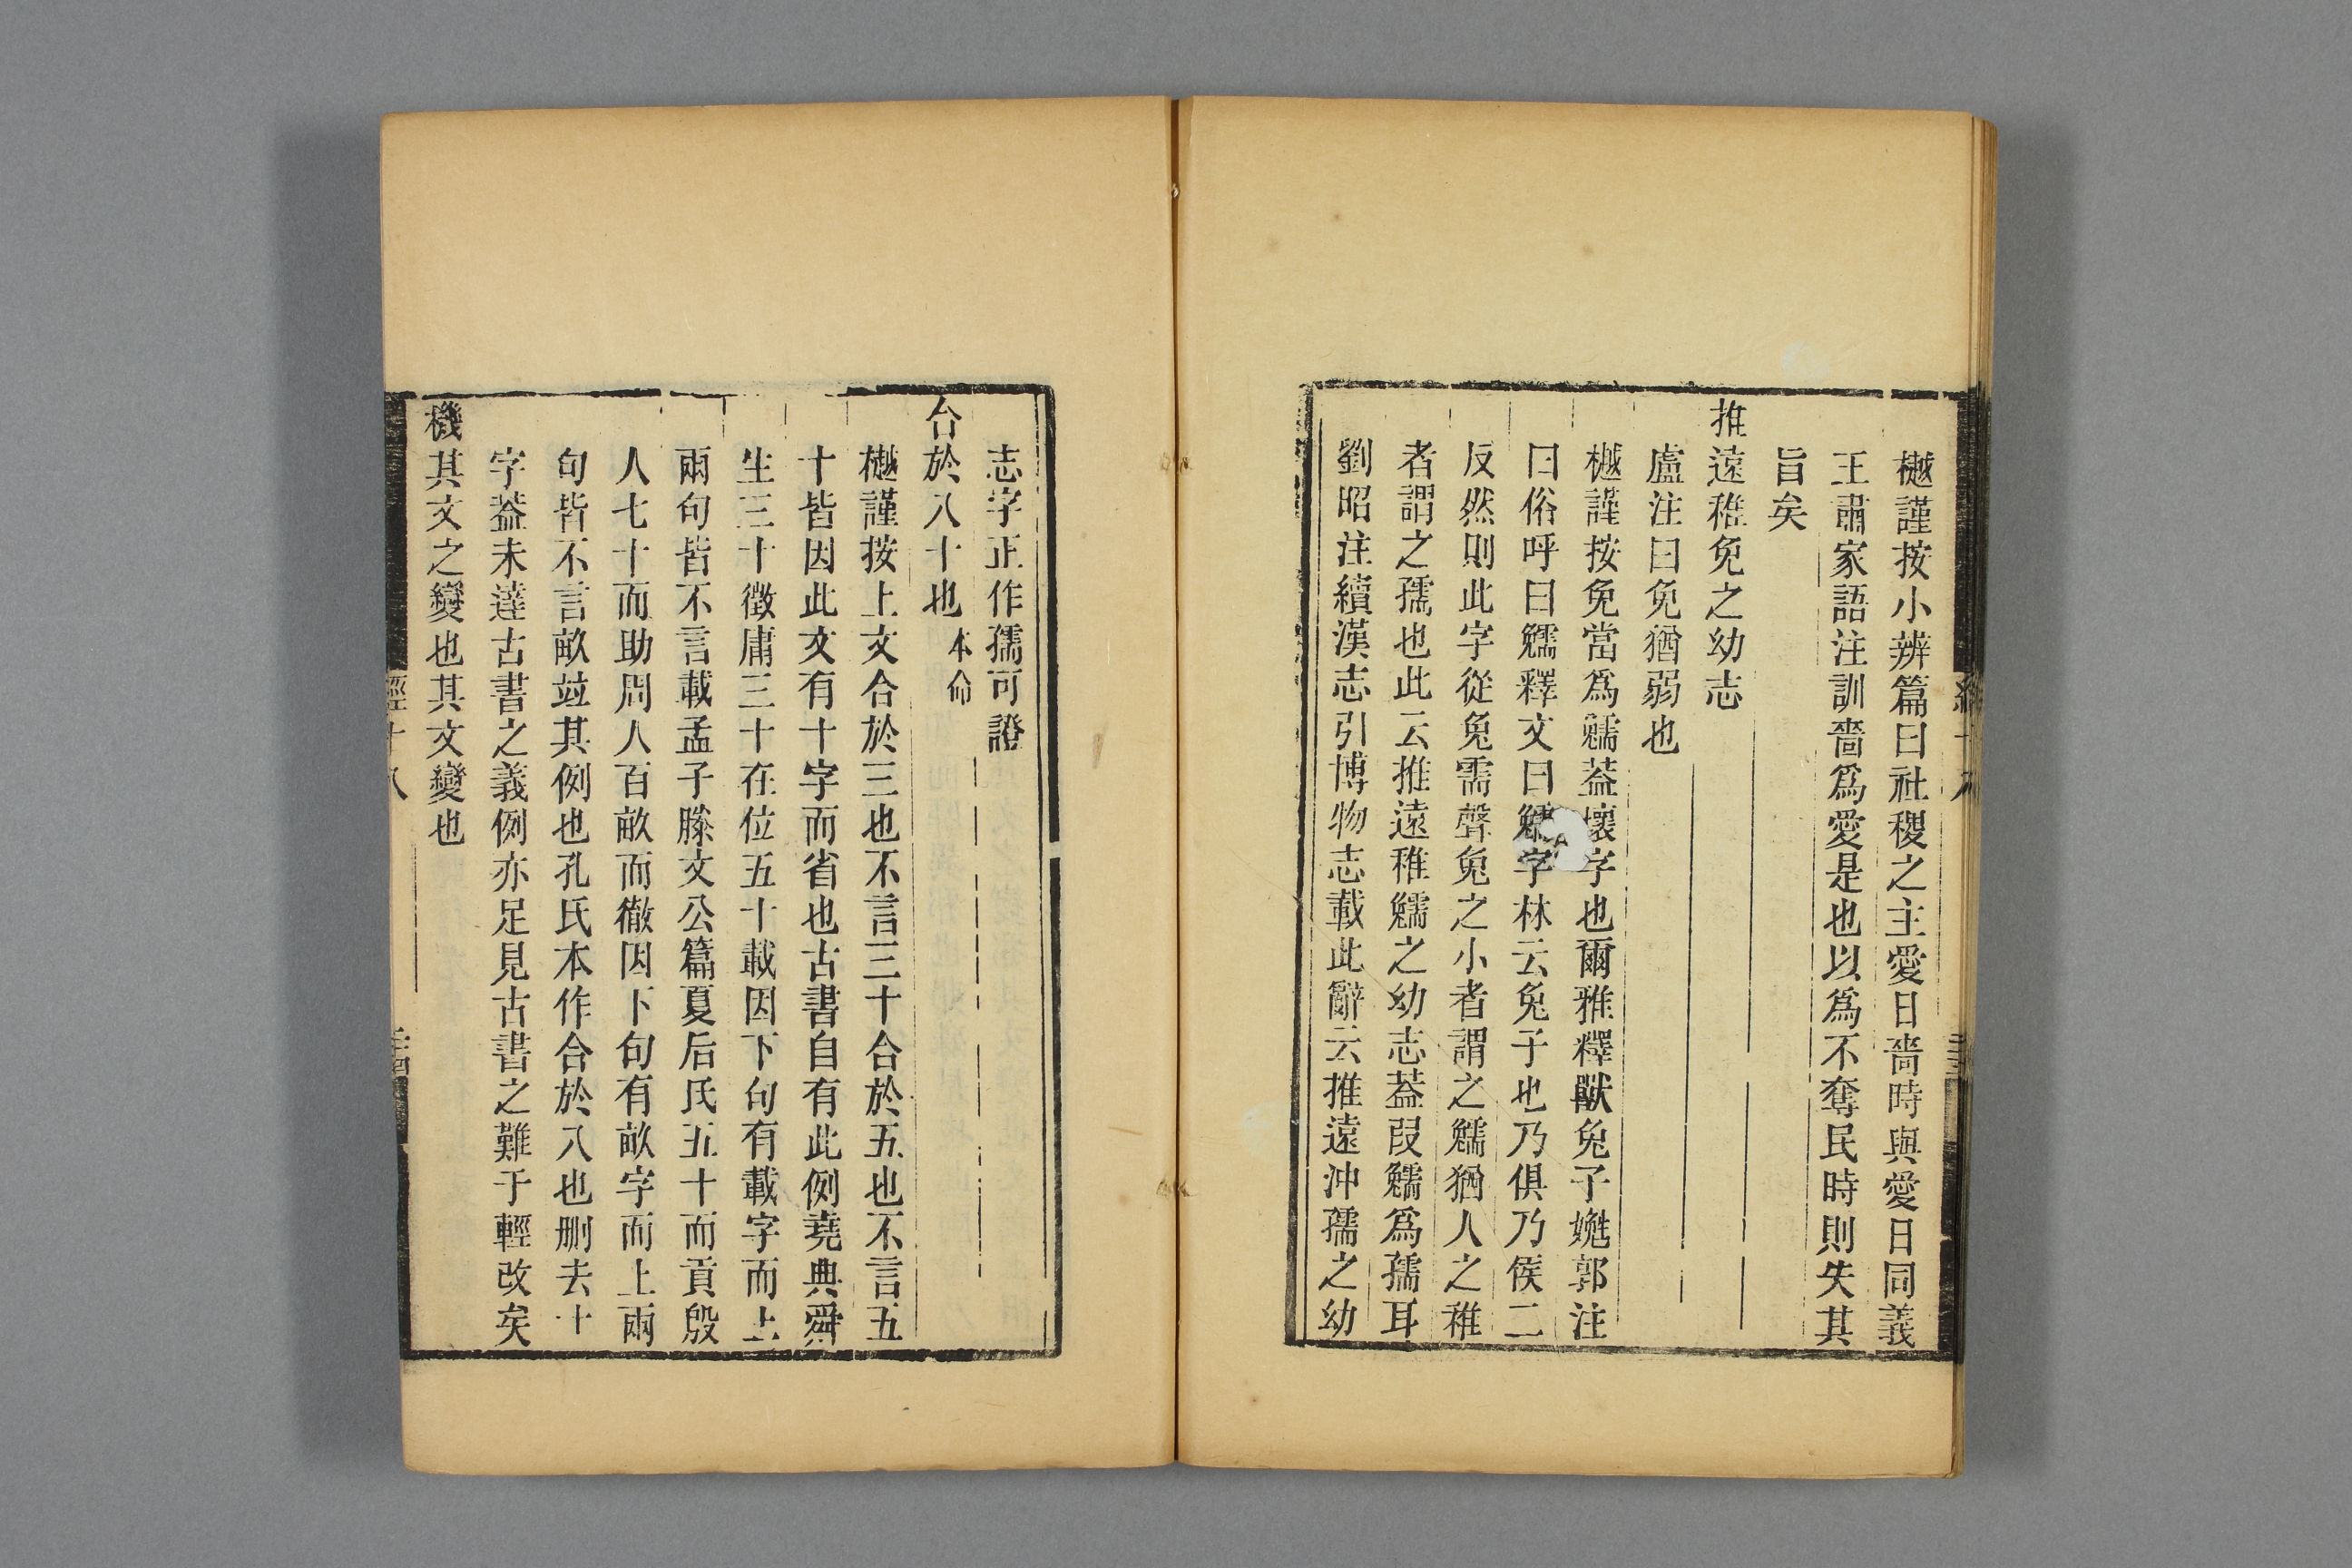 樾謹按小辨篇曰社稷之主愛日嗇時與愛日同義
王肅家語注訓嗇爲愛是也以爲不奪民時則失其
旨矣
推遠稚免之幼志
盧注曰免猶弱也
樾謹按免當爲䨲葢壞字也爾雅釋獸兔子嬎郭注
曰俗呼曰䨲釋文曰䨲字林云兔子也乃俱乃侯二
反然則此字從兔需聲兔之小者謂之䨲猶人之稚
者謂之孺也此云推遠稚䨲之幼志葢叚䨲爲孺耳
劉昭注續漢志引博物志載此辭云推遠沖孺之幼
志字正作孺可證
合於八十也 本命
樾謹按上文合於三也不言三十合於五也不言五
十皆因此文有十字而省也古書自有此例堯典舜
生三十徵庸三十在位五十載因下句有載字而上
兩句皆不言載孟子滕文公篇夏后氏五十而貢殷
人七十而助周人百畝而徹因下句有畝字而上兩
句皆不言畝竝其例也孔氏本作合於八也删去十
字葢未達古書之義例亦足見古書之難于輕改矣
機其文之變也其文變也
經十八